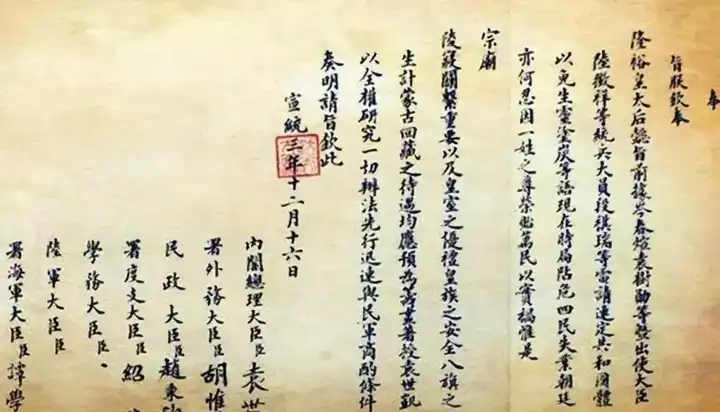 奉
旨朕欽奉
隆裕皇太后懿旨前據岑春煊袁樹勛等暨出使大臣
陸徵祥等統兵大員段祺瑞等電請速定共和國體
以免生靈塗炭等語現在時局阽危四民失業朝廷
亦何忍因一姓之尊榮貽萬民以實禍惟是
宗廟
陵寢關繫重要以及皇室之優禮皇族之安全八旗之
生計蒙古回藏之待遇均應預為籌畫著授袁世凱
以全權研究一切辦法先行迅速與民軍商酌條件
奏明請旨欽此
宣統三年十二月十六日
內閣總理大臣臣袁世
署外務大臣臣胡惟
民政大臣臣趙秉
署度支大臣臣紹
學務大臣臣
陸軍大臣臣
署海軍大臣臣譚學